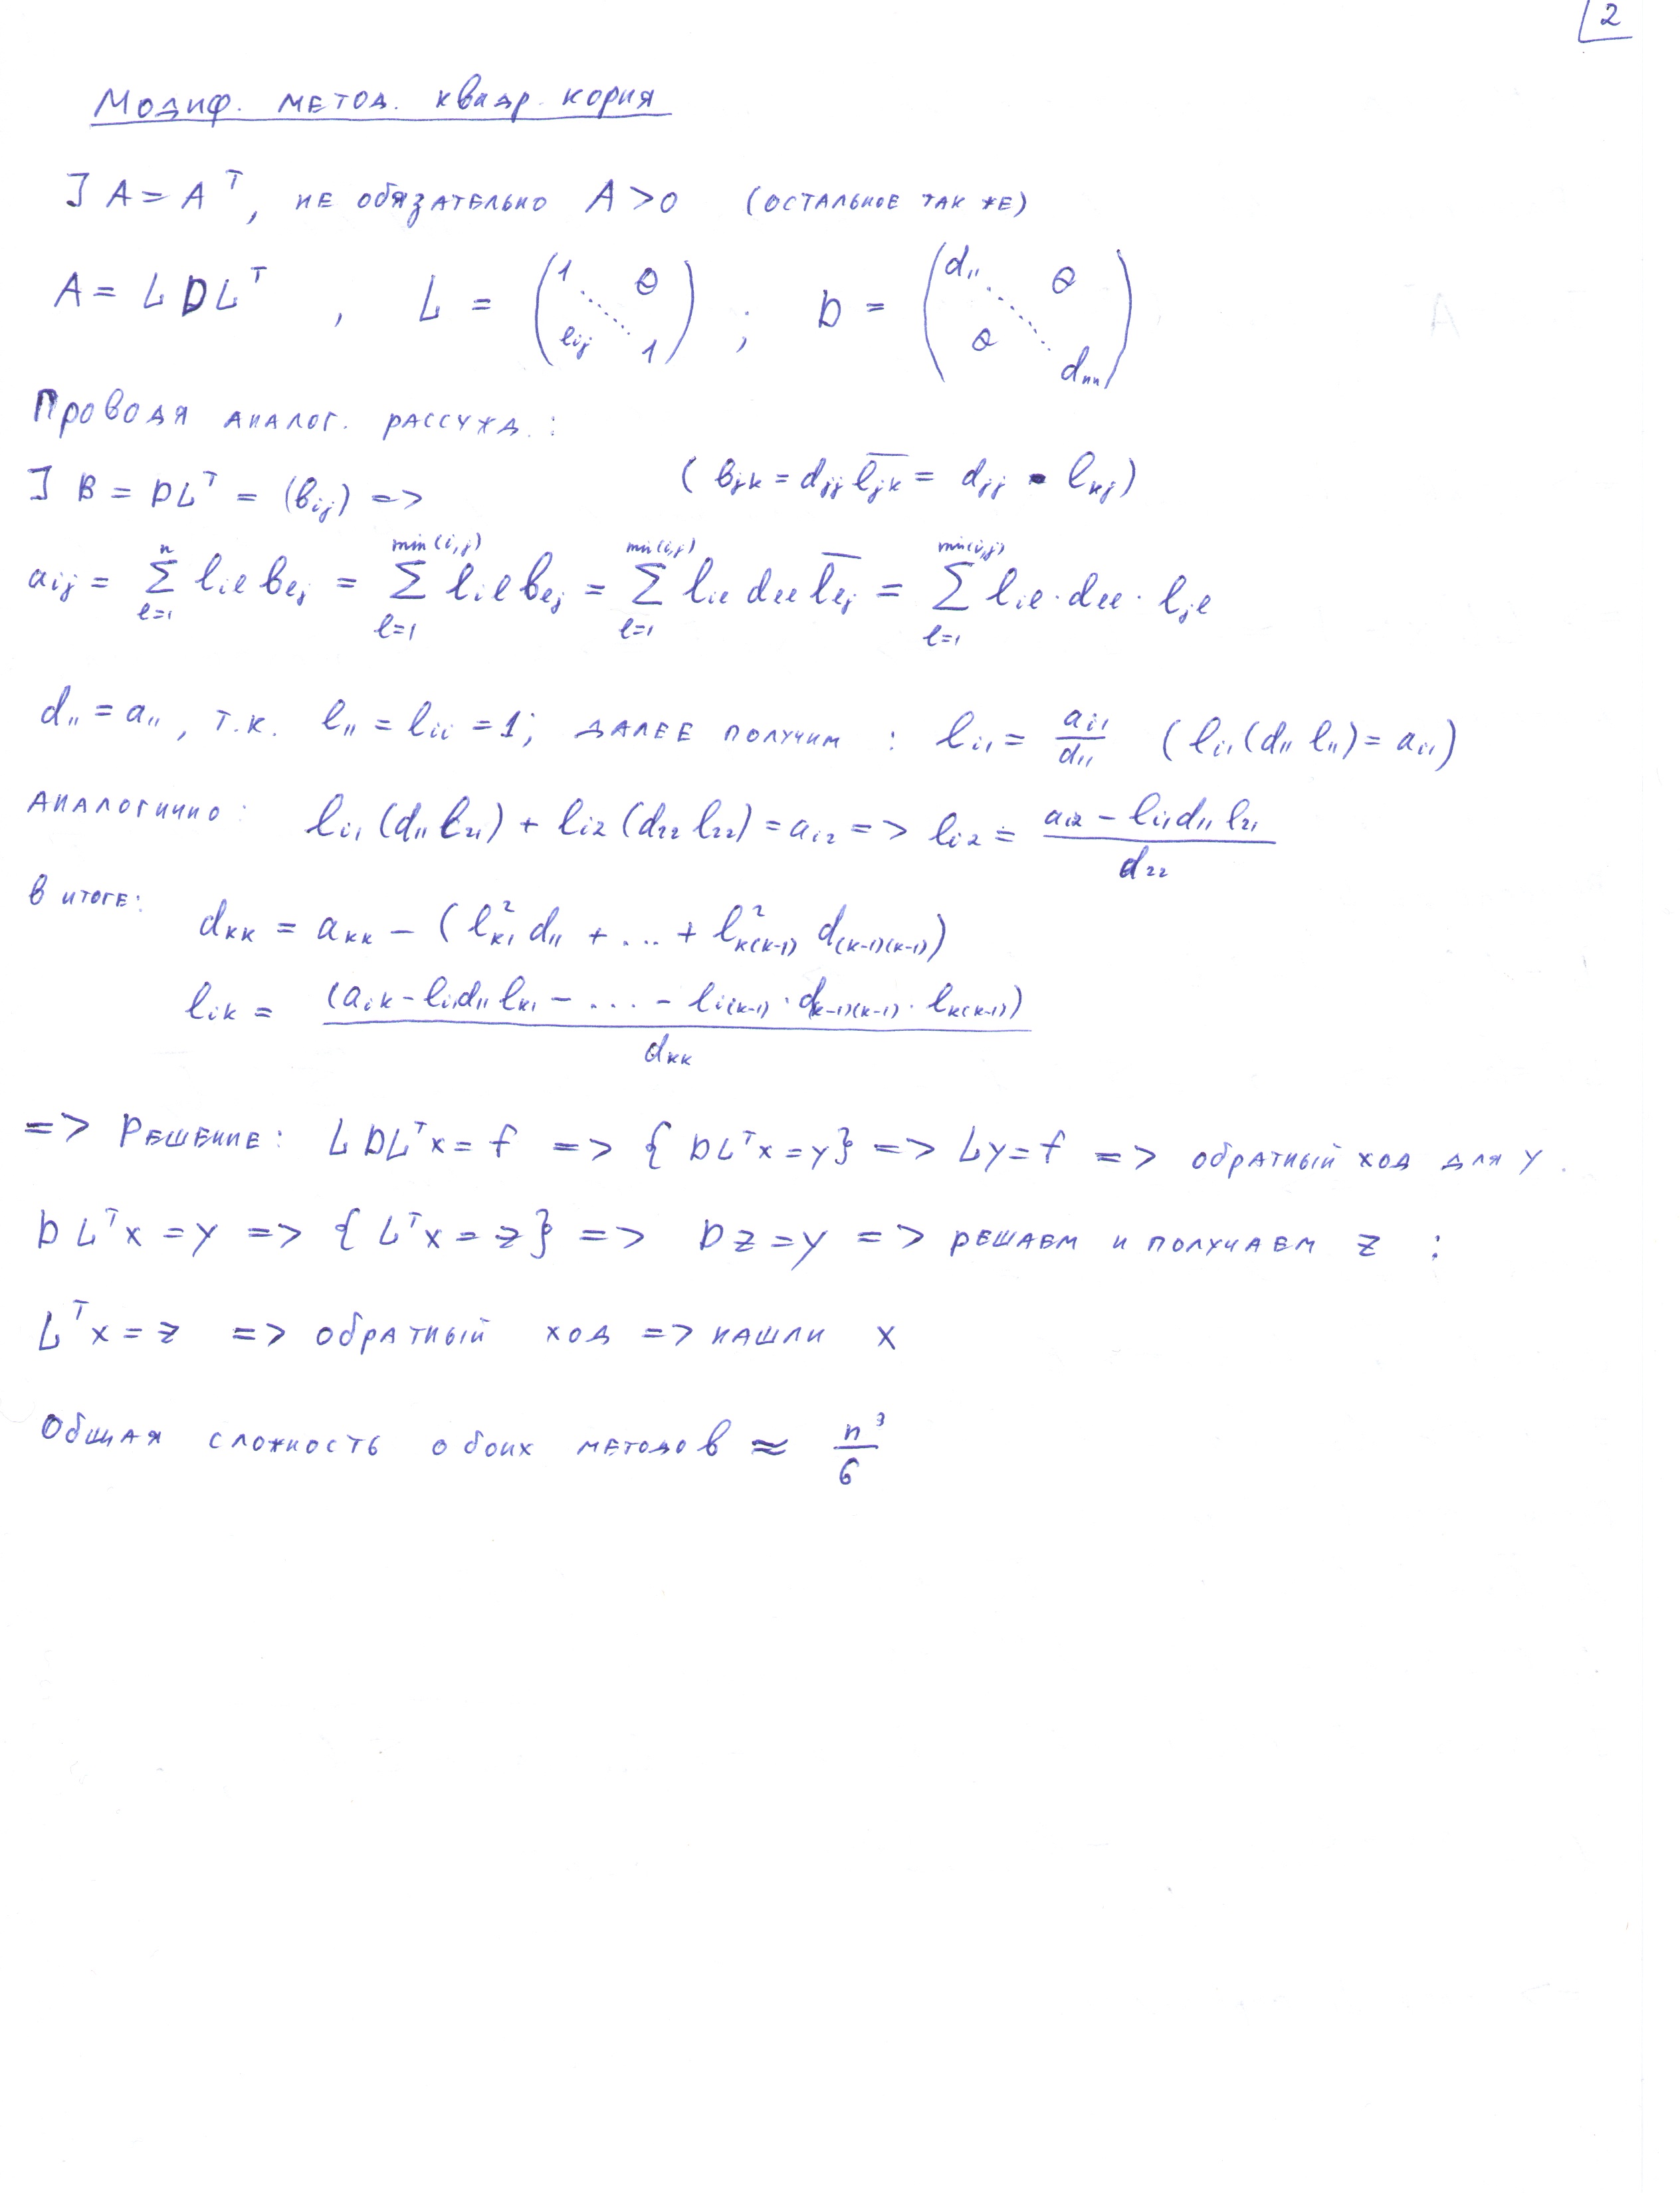 2
Модиф. метод. квадр. корня
] A = Aᵀ, не обязательно A > 0 (остальное так же)
A = L D Lᵀ, L = (1 ⋱ 1, θ, lᵢⱼ); D = (d₁₁ ⋱ dₙₙ, θ, θ)
Проводя аналог. рассужд.:
] B = DLᵀ = (bᵢⱼ) => (b_{jk} = d_{jj} \overline{l_{jk}} = d_{jj} · l_{kj})
a_{ij} = \sum_{l=1}^{n} l_{il} b_{lj} = \sum_{l=1}^{min(i,j)} l_{il} b_{lj} = \sum_{l=1}^{min(i,j)} l_{il} d_{ll} \overline{l_{lj}} = \sum_{l=1}^{min(i,j)} l_{il} · d_{ll} · l_{jl}
d₁₁ = a₁₁, т.к. l₁₁ = l_{ii} = 1; далее получим: l_{i1} = \frac{a_{i1}}{d_{11}} (l_{i1}(d₁₁ l₁₁) = a_{i1})
Аналогично: l_{i1}(d₁₁ l₂₁) + l_{i2}(d₂₂ l₂₂) = a_{i2} => l_{i2} = \frac{a_{i2} - l_{i1} d_{11} l_{21}}{d_{22}}
В итоге: d_{kk} = a_{kk} - (l²_{k1} d₁₁ + ... + l²_{k(k-1)} d_{(k-1)(k-1)})
l_{ik} = \frac{(a_{ik} - l_{i1} d_{11} l_{k1} - .... - l_{i(k-1)} · d_{(k-1)(k-1)} · l_{k(k-1)})}{d_{kk}}
=> Решение: LDLᵀx = f => {DLᵀx = y} => Ly = f => обратный ход для y.
DLᵀx = y => {Lᵀx = z} => Dz = y => решаем и получаем z :
Lᵀx = z => обратный ход => нашли x
Общая сложность обоих методов ≈ \frac{n³}{6}